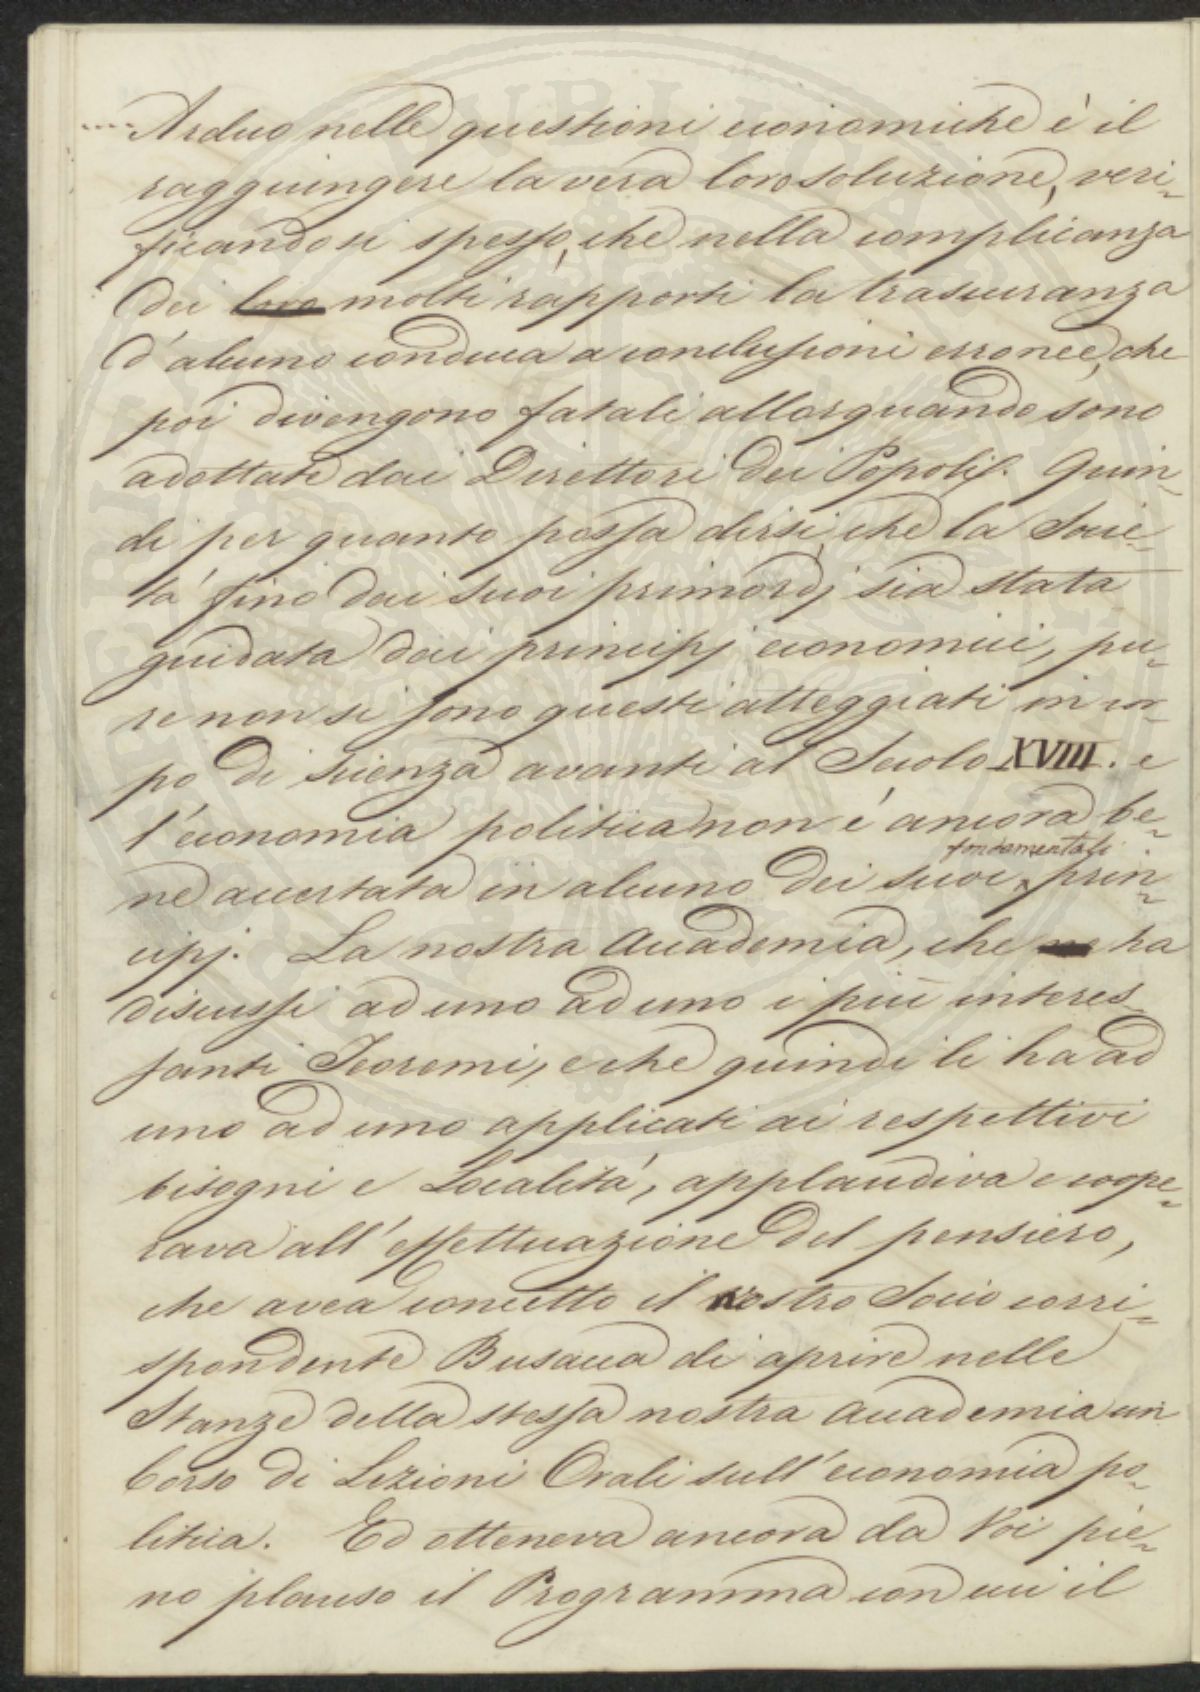 .... Arduo nelle questioni economiche è il
raggiungere la vera loro soluzione, veri=
ficandosi spesso, che nella complicanza
dei loro molti rapporti la trascuranza
d'alcuno conduca a conclusioni erronee, che
poi divengono fatali allorquando sono
adottate dai Direttori dei Popoli. Quin=
di per quanto possa dirsi, che la Socie=
tà fino dai suoi primordj sia stata
guidata dai principj economici, pu=
re non si sono questi atteggiati in cor=
po di scienza avanti al Secolo XVIII. e
l'economia politica non è ancora be=
fondamentali
ne accertata in alcuno dei suoi prin=
cipj. La nostra Accademia, che ha
discussi ad uno ad uno i più interes=
santi Teoremi, e che quindi li ha ad
uno ad uno applicati ai respettivi
bisogni e Località, applaudiva e coope=
rava all'effettuazione del pensiero,
che avea concetto il nostro Socio corri=
spondente Busacca di aprire nelle
Stanze della stessa nostra Accademia un
Corso di Lezioni Orali sull'economia po=
litica. Ed otteneva ancora da Voi pie=
no plauso il Programma con cui il